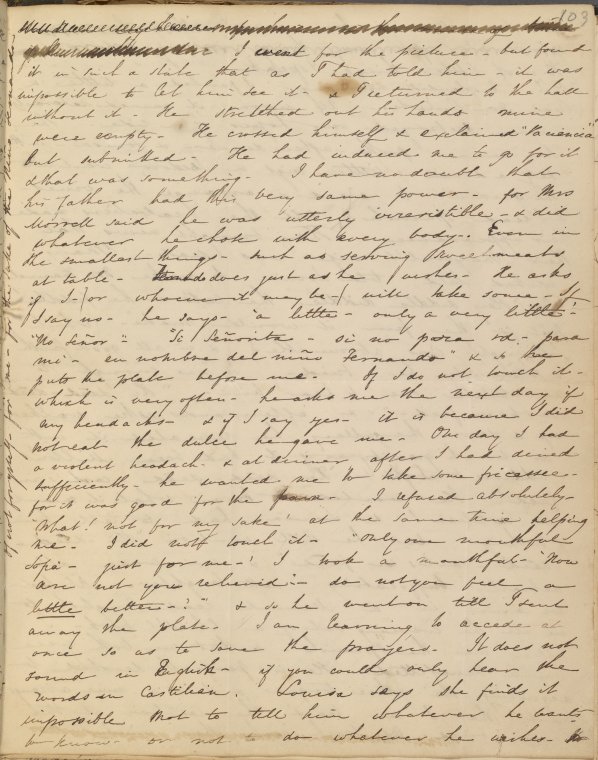 103
I went for the picture - but found
it in such a state that as I had told him - it was
impossible to let him see it - & I returned to the hall
without it - He stretched out his hands mine
were empty - He crossed himself & exclaimed "Paciencia"
but submitted - He had induced me to go for it
& that was something. I have no doubt that
his father had this very same power - for Mrs
Morrell said he was utterly irresistible - & did
whatever he chose with every body. Even in
the smallest things - such as serving sweetmeats
at table - does just as he wishes - He asks
if I - (or whoever it may be -) will take some. If
I say no - he says - "a little - only a very little" -
"No Señor" - "Si Señorita - si no para vd - para
mi - en nombre del niño Fernando" & so he
puts the plate before me - If I do not touch it -
which is very often - he asks me the next day if
my headachs - & if I say yes - it is because I did
not eat the dulce he gave me - One day I had
a violent headach - & at dinner after I had dined
sufficiently - he wanted me to take some fricassee -
for it was good for the I refused absolutely -
What! not for my sake at the same time helping
me - I did not touch it - "Only one mouthful
- just for me -! I took a mouthful - "Now
are not you relieved - do not you feel a
little better - ?" & so he went on till I sent
away the plate - I am learning to accede at
once so as to save the prayers - It does not
sound in English - if you could only hear the
words in Castilian. Louisa says she finds it
impossible not to tell him whatever he wants
to know - or not to do whatever he wishes -
if not for yours - for me - for the sake of the